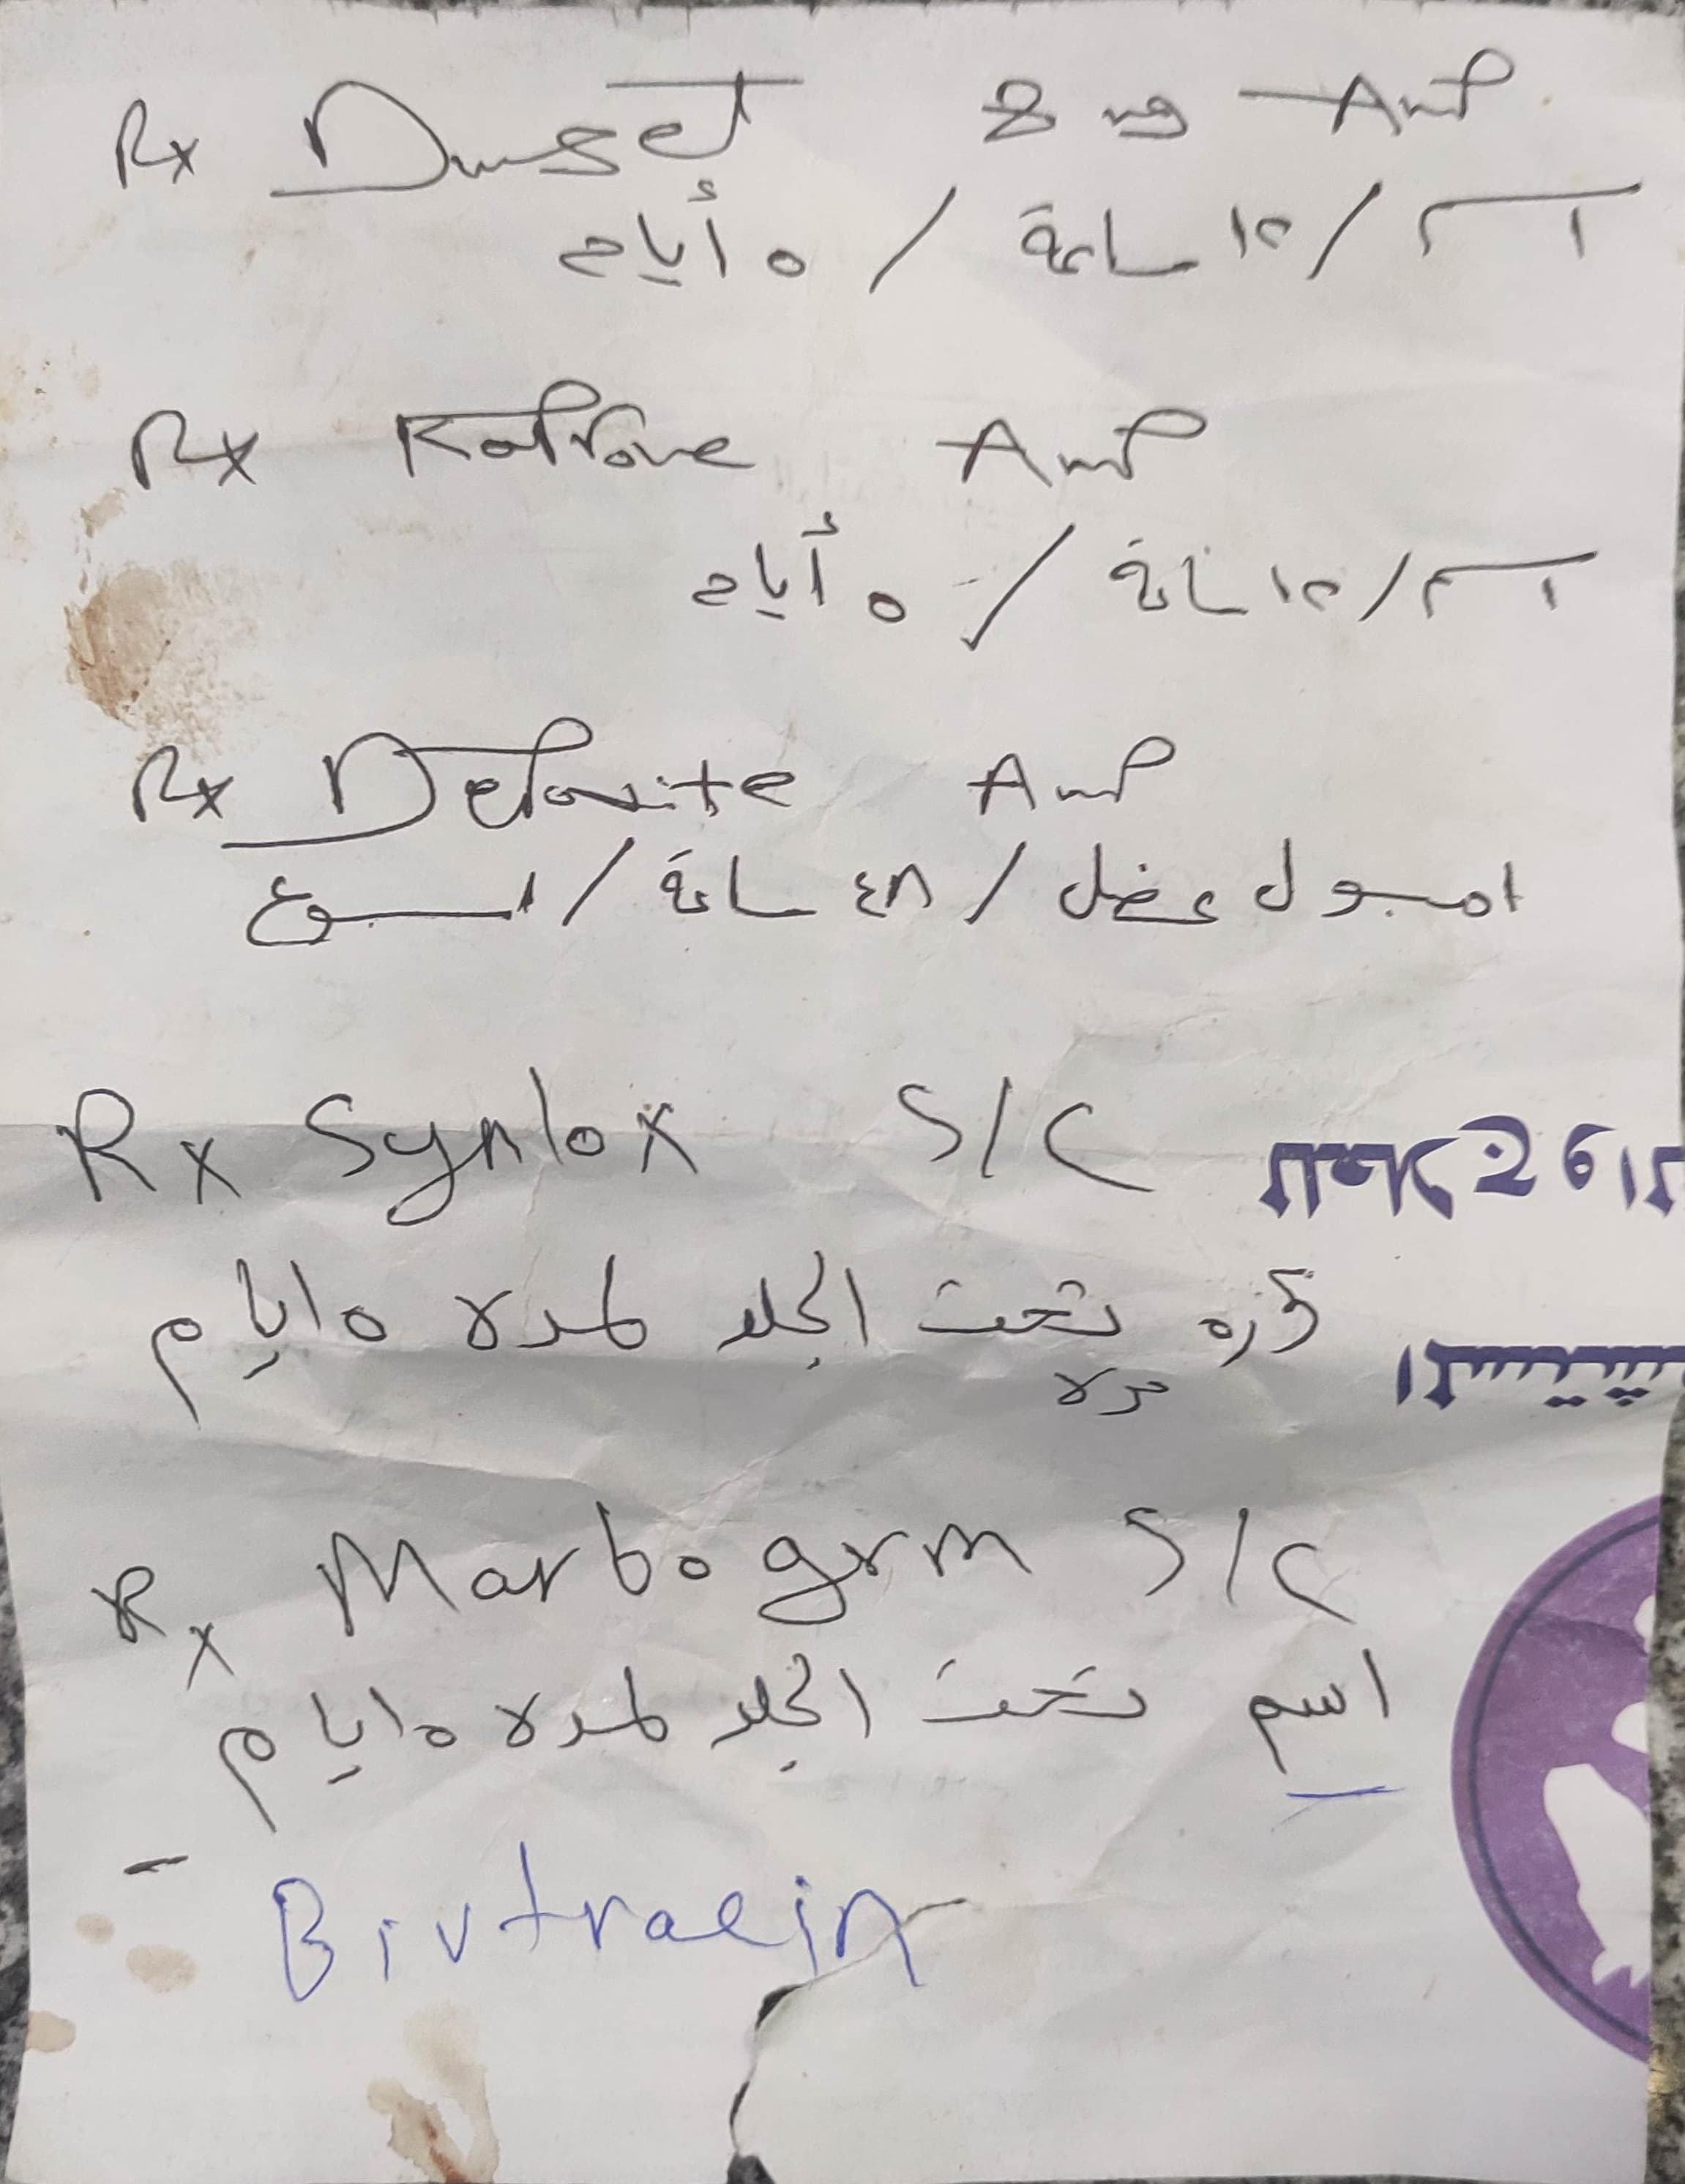 Rx Danset 8 mg Amp
١ سم / ١٢ ساعة / ٥ أيام
Rx Kapron Amp
١ سم / ١٢ ساعة / ٥ أيام
Rx Depovite Amp
امبول عضل / ٤٨ ساعة / اسبوع
Rx Synlox S/C
تحت الجلد لمده ٥ ايام
Rx Marbogrm S/C
اسم تحت الجلد لمده ٥ ايام
- Bivtracin